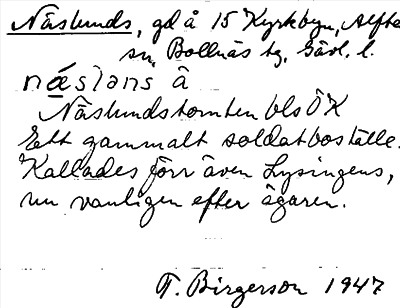 Näslunds, gd å 15 Kyrkbyn, Alfta
sn, Bollnäs tg, Gävl. l.
næslans å
Näslundstomten bls ÖK
Ett gammalt soldatboställe.
Kallades förr även Lysingens,
nu vanligen efter ägaren.
T. Birgerson 1947